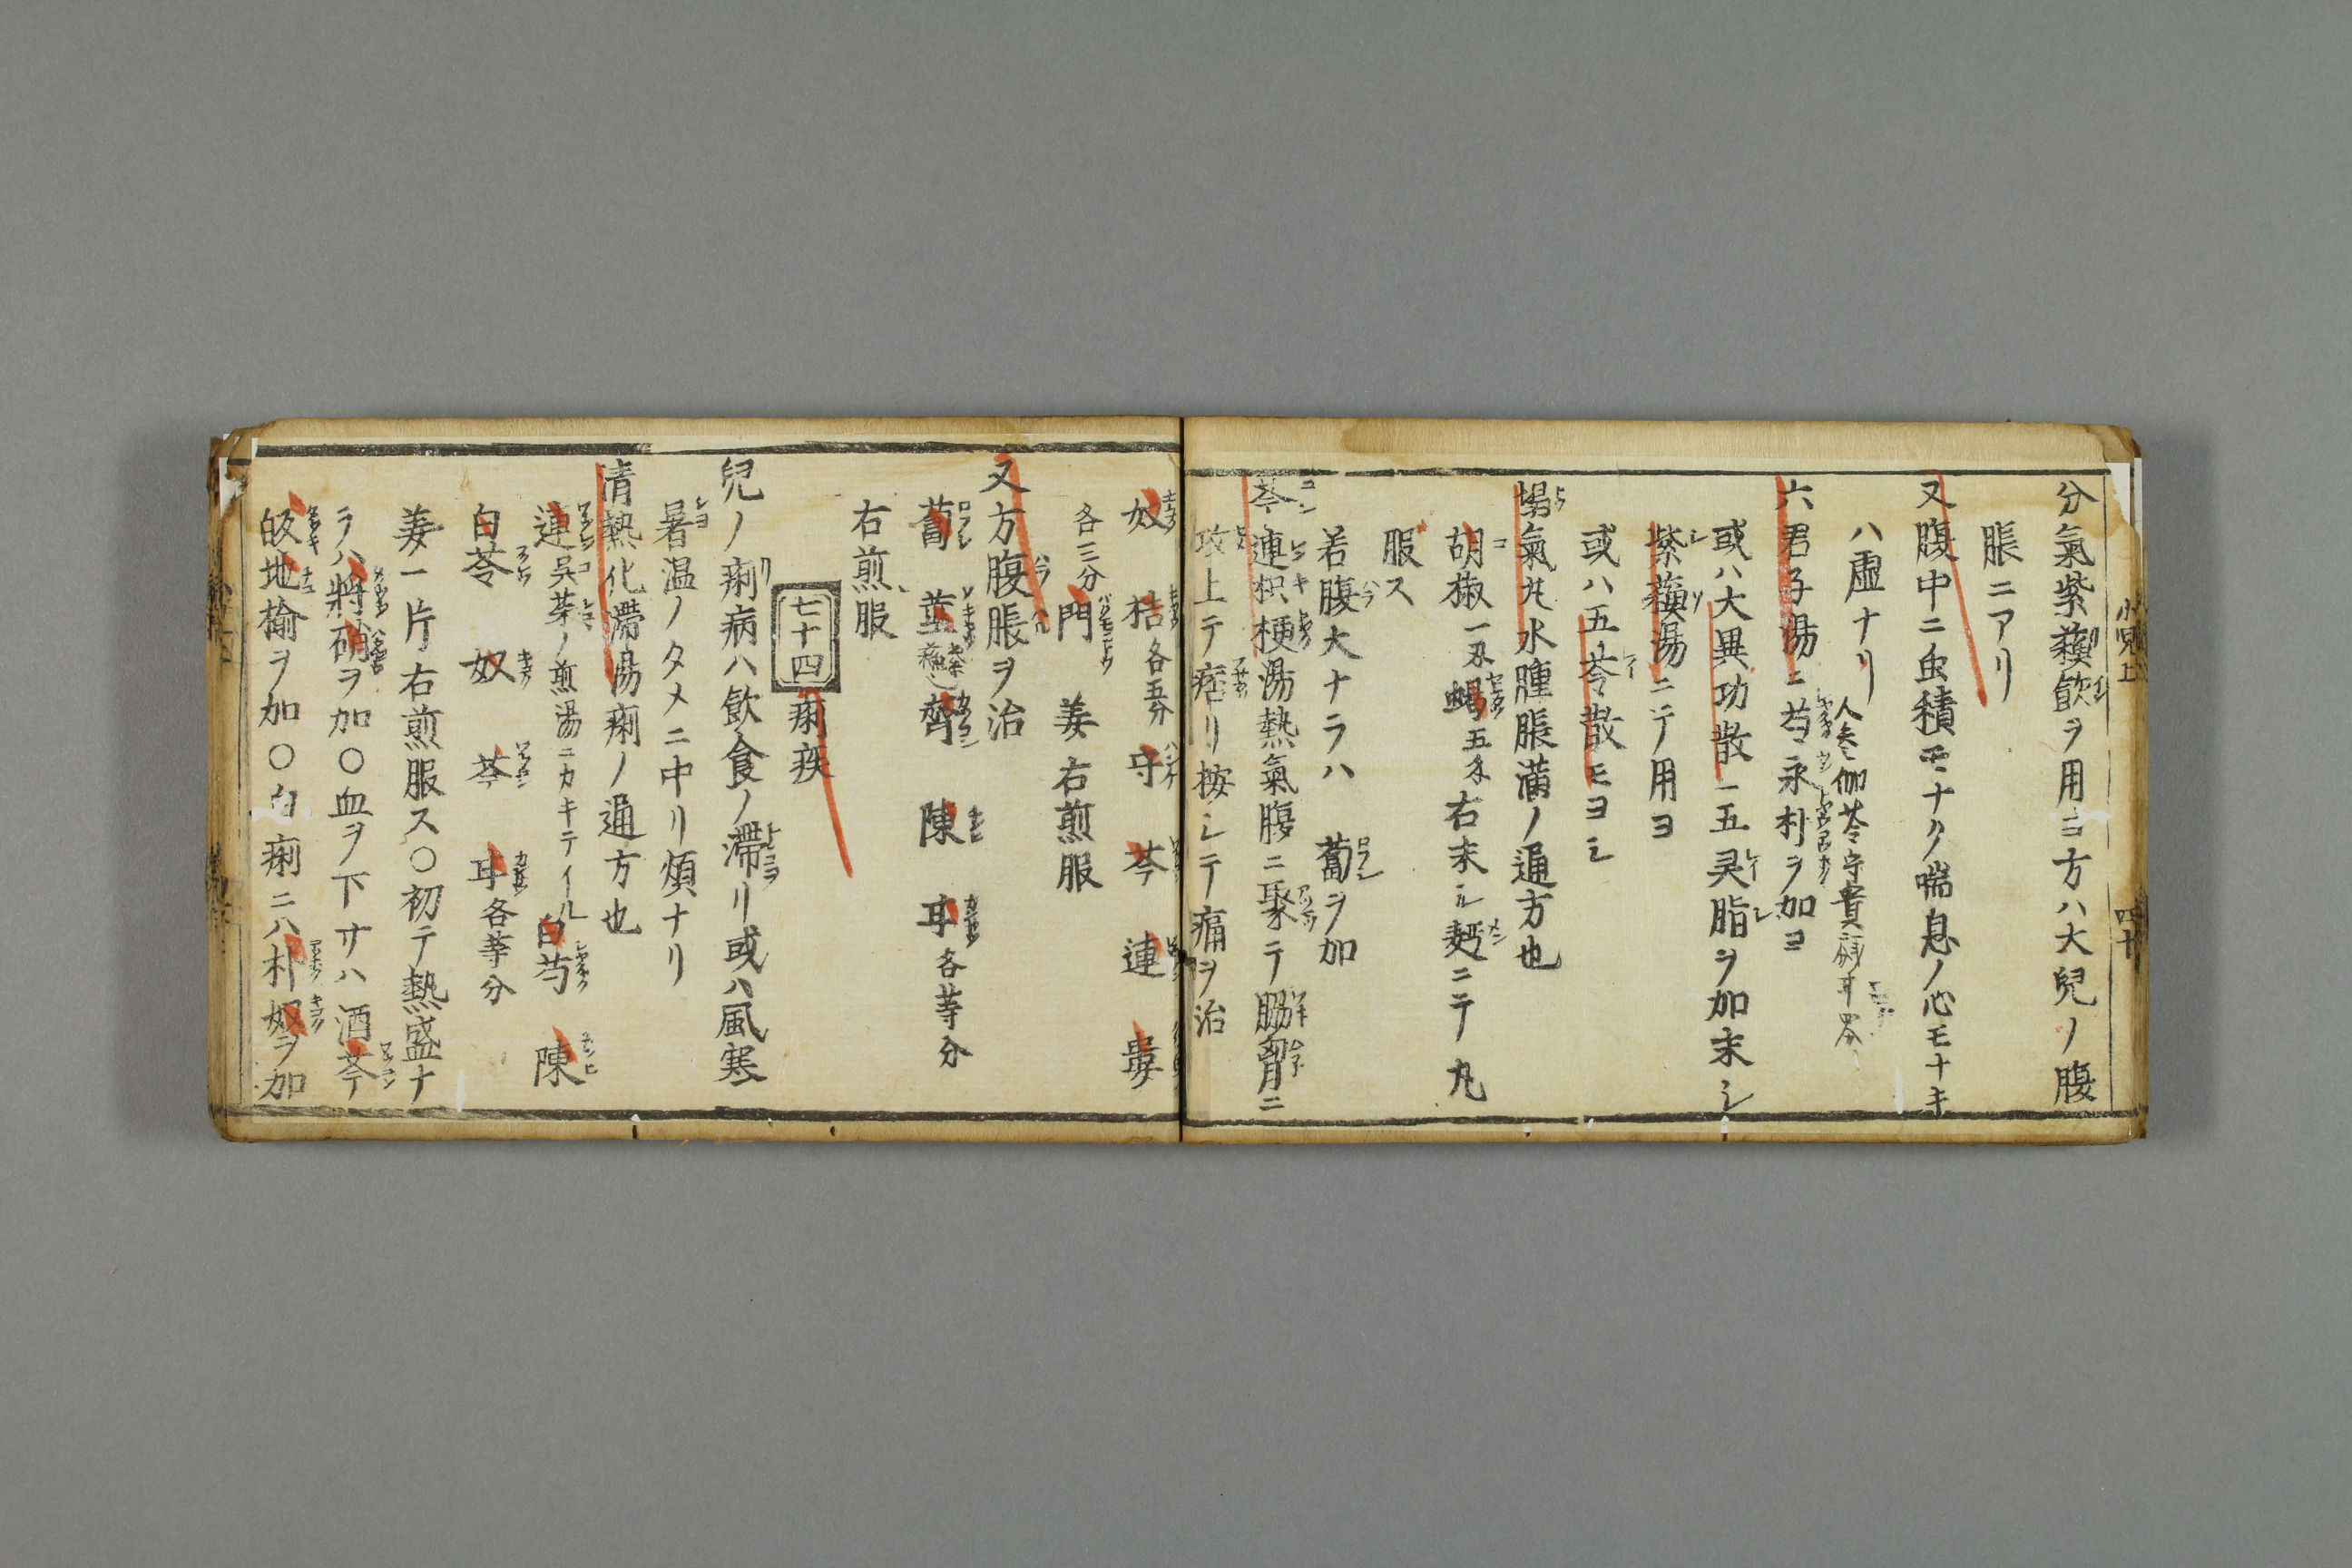 小児上
四十
分氣紫蘓飲ヲ用ヨ方ハ大兒ノ腹
脹ニアリ
又腹中ニ虫積モナク喘息ノ心モナキ
ハ虚ナリ
六君子湯ニ芍
朴ヲ加ヨ
或ハ大異功散ニ五灵脂ヲ加末シ
紫蘓湯ニテ用ヨ
或ハ五苓散モヨシ
氣丸水腫脹滿ノ通方也
胡椒一匁蝎五ケ右末シ麪ニテ丸
服ス
若腹大ナラハ蔔ヲ加
芩連枳梗湯熱氣腹ニ聚テ脇胷ニ
攻上テ痞リ按シテ痛ヲ治
奴 桔各五分 守 芩 連
各三分門 姜右煎服
又方腹脹ヲ治
蔔 陳 各等分
右煎服
七十四 痢疾
兒ノ痢病ハ飲食ノ滯リ或ハ風寒
暑温ノタメニ中リ煩ナリ
清熱化滯湯痢ノ通方也
連呉茱ノ煎湯ニカキテイル 白芍 陳
白苓 奴 芩 各等分
姜一片右煎服ス〇初テ熱盛ナ
ラハ將硝ヲ加〇血ヲ下サハ酒芩
地榆ヲ加〇白痢ニハ朴奴ヲ加